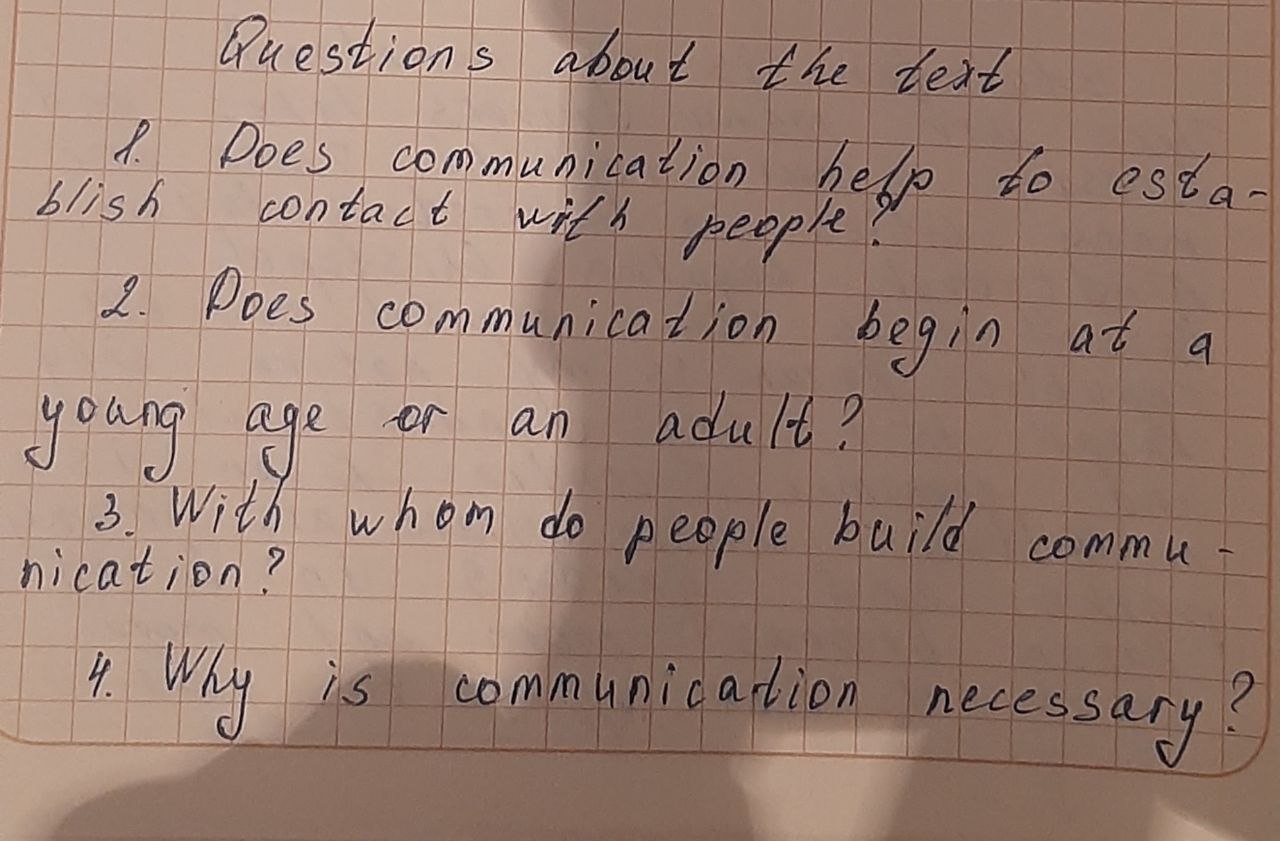 Questions about the text
1. Does communication help to esta-
blish contact with people?
2. Does communication begin at a
young age or an adult?
3. With whom do people build commu-
nication?
4. Why is communication necessary?